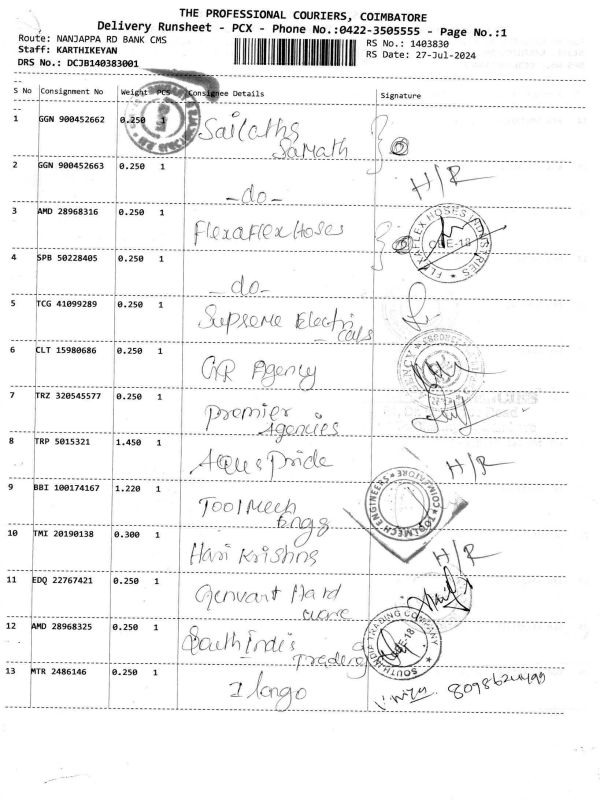 THE PROFESSIONAL COURIERS, COIMBATORE
Delivery Runsheet - PCX - Phone No.:0422-3505555 - Page No.:1
Route: NANJAPPA RD BANK CMS
RS No.: 1403830
Staff: KARTHIKEYAN
RS Date: 27-Jul-2024
DRS No.: DCJB140383001
S No Consignment No Weight PCS Consignee Details Signature
1 GGN 900452662 0.250 1 Sailaths
Samath
2 GGN 900452663 0.250 1 -do- H/R
3 AMD 28968316 0.250 1 FlexaFlex Hoses
FLEXAFLEX HOSES INDUSTRIES
CBE-18
4 SPB 50228405 0.250 1 -do-
5 TCG 41099289 0.250 1 Supreme Electri
-cals
6 CLT 15980686 0.250 1 GR Agency
7 TRZ 320545577 0.250 1 Premier
Agencies
8 TRP 5015321 1.450 1 Aquspride H/R
9 BBI 100174167 1.220 1 Toolmech
Engg
TOOLMECH ENGINEERS
COIMBATORE
10 TMI 20190138 0.300 1 Hari Krishns H/R
11 EDQ 22767421 0.250 1 Hard
ware
12 AMD 28968325 0.250 1 South Indis
Trading
SOUTH INDIA TRADING COMPANY
CBE-18
13 MTR 2486146 0.250 1 Ilango